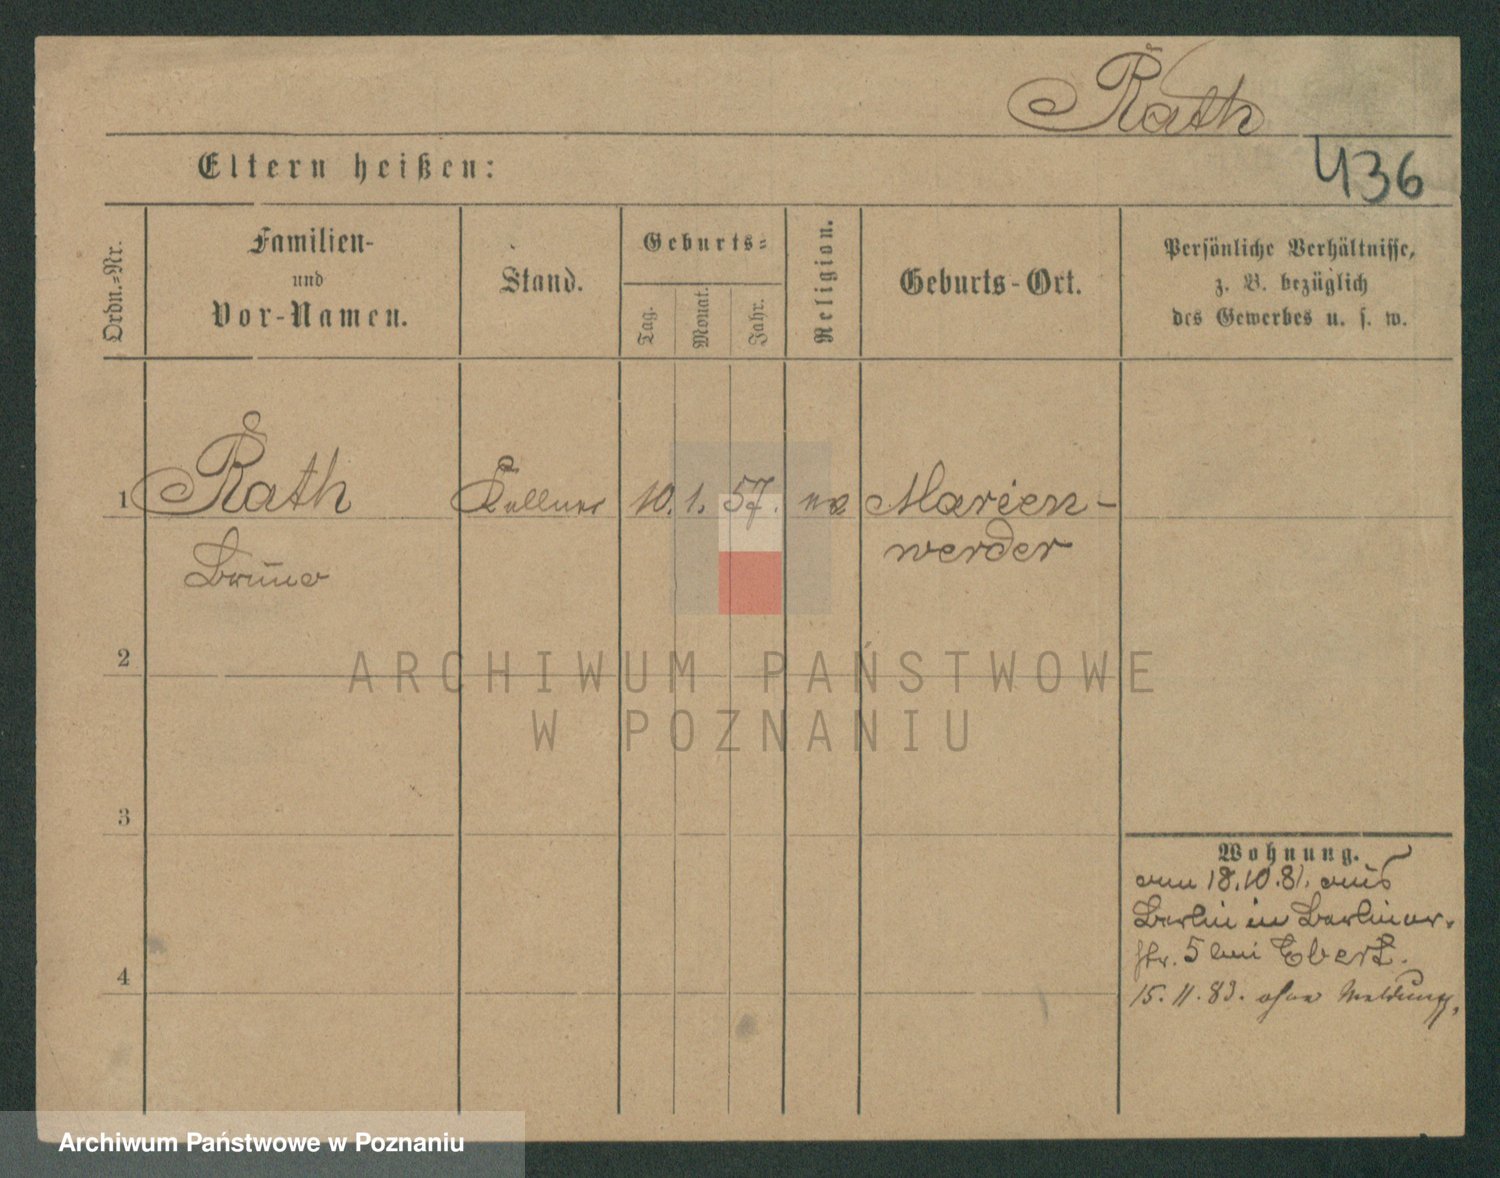 Rath
Eltern heißen:
436
Ordn.-Nr.
Familien-
und
Vor-Namen.
Stand.
Geburts-
Tag.
Monat.
Jahr.
Religion.
Geburts-Ort.
Persönliche Verhältnisse,
z. B. bezüglich
des Gewerbes u. s. w.
1
Rath
Kellner
10.
1.
57.
Marien-
werder
Bruno
2
ARCHIWUM PAŃSTWOWE
W POZNANIU
3
Wohnung.
18.10.81. aus
Berlin in Berliner-
str. 5 bei Ebert.
15.11.83. ohne Meldung.
4
Archiwum Państwowe w Poznaniu